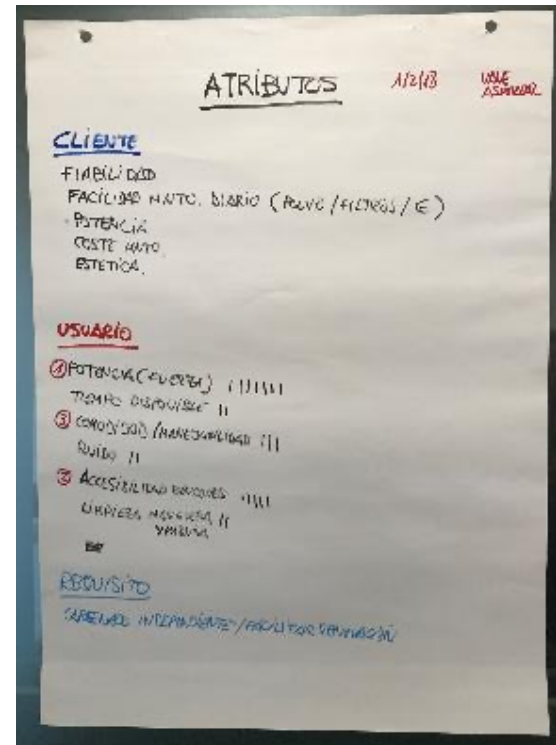 ATRIBUTOS
1/2/13
CLIENTE
FIABILIDAD
FACILIDAD MNTO. DIARIO (POLVO/FILTROS/€)
POTENCIA
COSTE MNTO.
ESTETICA.
USUARIO
① POTENCIA (FUERZA) |||||||
TIEMPO DISPONIBLE ||
③ COMODIDAD/MANEJABILIDAD |||
RUIDO ||
② ACCESIBILIDAD |||||
LIMPIEZA MANGUERA ||
REQUISITO
INDEPENDIENTE/FACILITAR